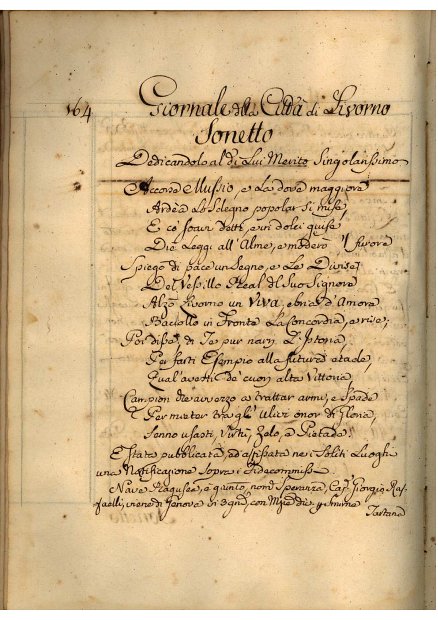 164
Giornale della Città di Livorno
Sonetto
Dedicandolo al di Lui Merito Singolarissimo
Accorse Mussio, e La dove maggiore
Ardèa Lo Sdegno popolar si mise,
E co' soavi detti, e in dolci guise
Diè Leggi all' Alme, e moderò 'l furore
Spiegò di pace un Segno, e Le Divise
Del Vessillo Real del Suo Signore
Alzò Livorno un Viva, ebrio d'Amore
Baciollo in Fronte La Concordia, e rise;
Poi disse, di Te pur narri L'Istoria,
Per farti Esempio alla futura etade,
Qual' avesti de' cuori alta Vittoria
Campion div avvezzo a trattar armi, e Spade
Per mieter tra gli Ulivi onor di Gloria,
Sonno usasti, Virtù, Zelo, e Pietade
È Stata pubblicata, ed affissata nei Soliti Luoghi
una Notificazione Sopra i Fidecommissi
Nave Ragusea, e quinto, nomᵃ Speranza, Capⁿ Giorgio Raf-
faelli, viene di Genova di 3 gnⁱ, con Mrᶻⁱᵉ diᵉ p Smirne
Tartana